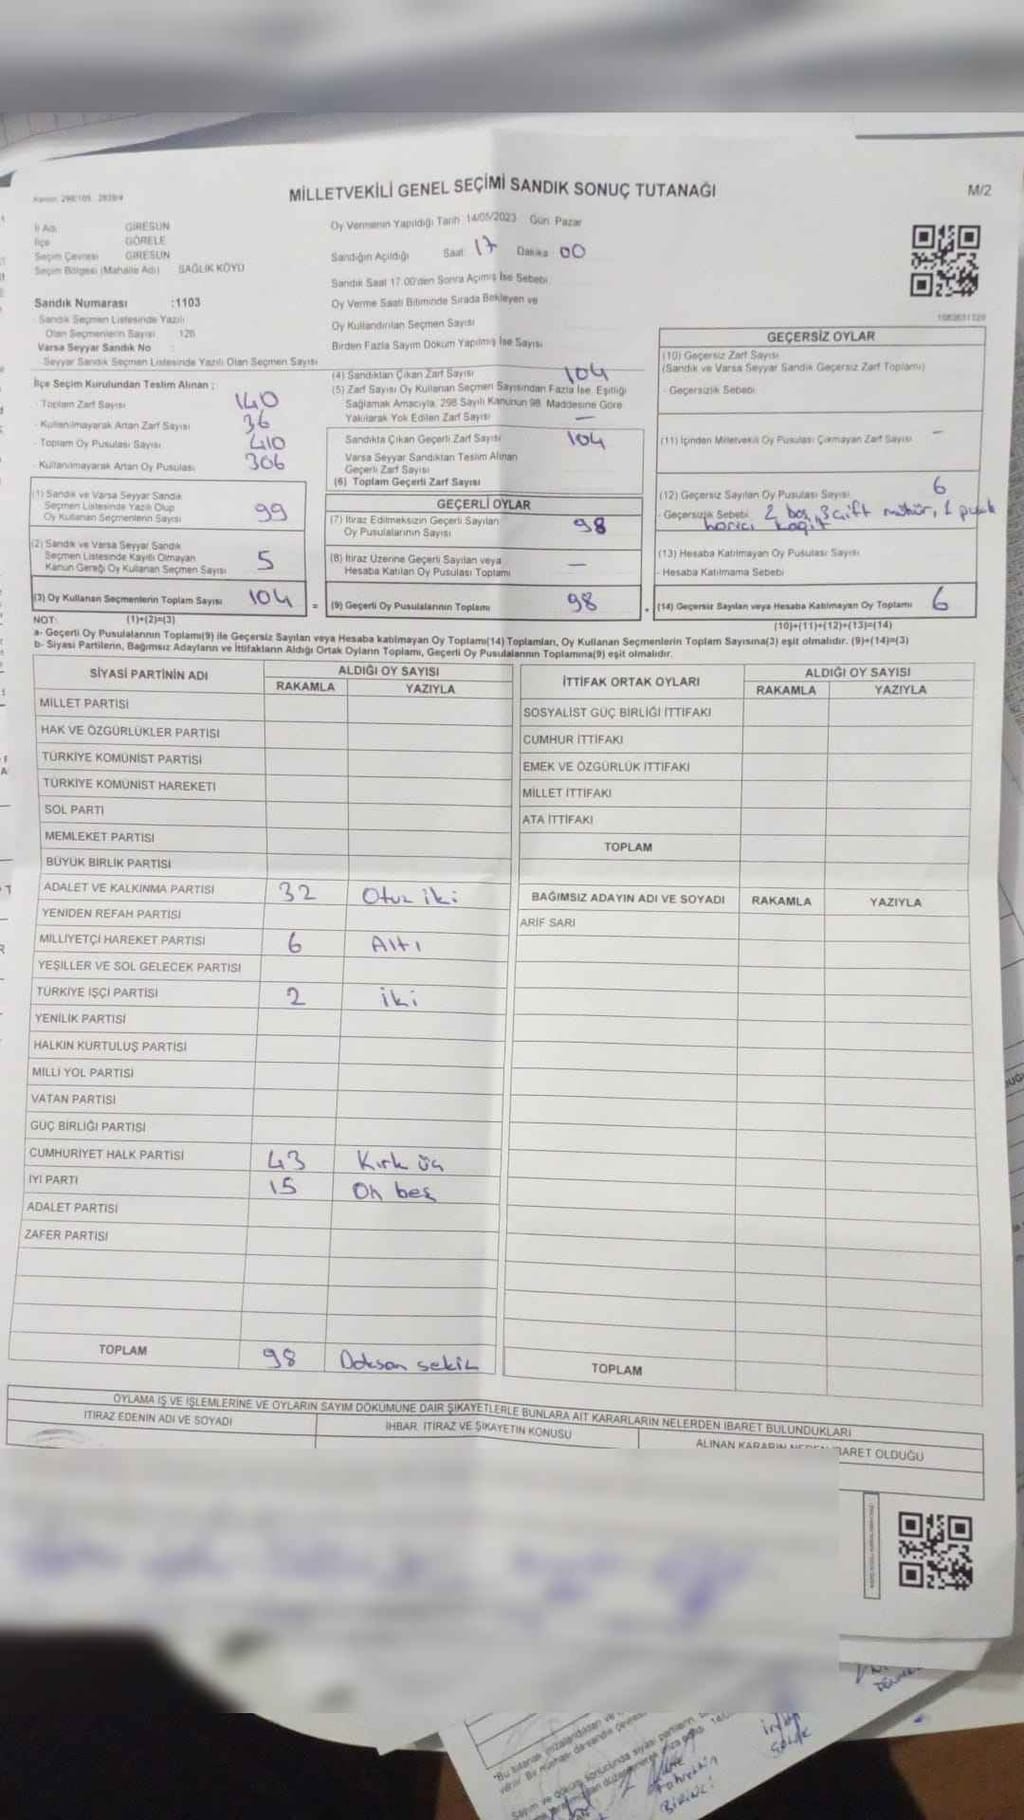 MİLLETVEKİLİ GENEL SEÇİMİ SANDIK SONUÇ TUTANAĞI
M/2
İl Adı GİRESUN
İlçe GÖRELE
Seçim Çevresi GİRESUN
Seçim Bölgesi (Mahalle Adı) SAĞLIK KÖYÜ
Sandık Numarası :1103
Sandık Seçmen Listesinde Yazılı
Olan Seçmenlerin Sayısı 126
Varsa Seyyar Sandık No
Seyyar Sandık Seçmen Listesinde Yazılı Olan Seçmen Sayısı
Oy Vermenin Yapıldığı Tarih 14/05/2023 Gün: Pazar
Sandığın Açıldığı Saat: 17 Dakika 00
Sandık Saat 17.00'den Sonra Açılmış İse Sebebi
Oy Verme Saati Bitiminde Sırada Bekleyen ve
Oy Kullandırılan Seçmen Sayısı
Birden Fazla Sayım Döküm Yapılmış İse Sayısı
İlçe Seçim Kurulundan Teslim Alınan :
- Toplam Zarf Sayısı 140
- Kullanılmayarak Artan Zarf Sayısı 36
- Toplam Oy Pusulası Sayısı 410
- Kullanılmayarak Artan Oy Pusulası 306
(1) Sandık ve Varsa Seyyar Sandık
Seçmen Listesinde Yazılı Olup
Oy Kullanan Seçmenlerin Sayısı 99
(2) Sandık ve Varsa Seyyar Sandık
Seçmen Listesinde Kayıtlı Olmayan
Kanun Gereği Oy Kullanan Seçmen Sayısı 5
(3) Oy Kullanan Seçmenlerin Toplam Sayısı 104 =
(4) Sandıktan Çıkan Zarf Sayısı 104
(5) Zarf Sayısı Oy Kullanan Seçmen Sayısından Fazla İse, Eşitliği
Sağlamak Amacıyla, 298 Sayılı Kanunun 98. Maddesine Göre
Yakılarak Yok Edilen Zarf Sayısı —
Sandıkta Çıkan Geçerli Zarf Sayısı 104
Varsa Seyyar Sandıktan Teslim Alınan
Geçerli Zarf Sayısı
(6) Toplam Geçerli Zarf Sayısı
GEÇERLİ OYLAR
(7) İtiraz Edilmeksizin Geçerli Sayılan
Oy Pusulalarının Sayısı 98
(8) İtiraz Üzerine Geçerli Sayılan veya
Hesaba Katılan Oy Pusulası Toplamı —
(9) Geçerli Oy Pusulalarının Toplamı 98
GEÇERSİZ OYLAR
(10) Geçersiz Zarf Sayısı
(Sandık ve Varsa Seyyar Sandık Geçersiz Zarf Toplamı)
- Geçersizlik Sebebi
(11) İçinden Milletvekili Oy Pusulası Çıkmayan Zarf Sayısı -
(12) Geçersiz Sayılan Oy Pusulası Sayısı 6
- Geçersizlik Sebebi 2 boş, 3 çift mühür, 1
harici kağıt
(13) Hesaba Katılmayan Oy Pusulası Sayısı
- Hesaba Katılmama Sebebi
(14) Geçersiz Sayılan veya Hesaba Katılmayan Oy Toplamı 6
NOT: (1)+(2)=(3)
(10)+(11)+(12)+(13)=(14)
a- Geçerli Oy Pusulalarının Toplamı(9) ile Geçersiz Sayılan veya Hesaba katılmayan Oy Toplamı(14) Toplamları, Oy Kullanan Seçmenlerin Toplam Sayısına(3) eşit olmalıdır. (9)+(14)=(3)
b- Siyasi Partilerin, Bağımsız Adayların ve İttifakların Aldığı Ortak Oyların Toplamı, Geçerli Oy Pusulalarının Toplamına(9) eşit olmalıdır.
SİYASİ PARTİNİN ADI ALDIĞI OY SAYISI
RAKAMLA YAZIYLA
MİLLET PARTİSİ
HAK VE ÖZGÜRLÜKLER PARTİSİ
TÜRKİYE KOMÜNİST PARTİSİ
TÜRKİYE KOMÜNİST HAREKETİ
SOL PARTİ
MEMLEKET PARTİSİ
BÜYÜK BİRLİK PARTİSİ
ADALET VE KALKINMA PARTİSİ 32 Otuz iki
YENİDEN REFAH PARTİSİ
MİLLİYETÇİ HAREKET PARTİSİ 6 Altı
YEŞİLLER VE SOL GELECEK PARTİSİ
TÜRKİYE İŞÇİ PARTİSİ 2 iki
YENİLİK PARTİSİ
HALKIN KURTULUŞ PARTİSİ
MİLLİ YOL PARTİSİ
VATAN PARTİSİ
GÜÇ BİRLİĞİ PARTİSİ
CUMHURİYET HALK PARTİSİ 43 Kırk üç
İYİ PARTİ 15 On beş
ADALET PARTİSİ
ZAFER PARTİSİ
TOPLAM 98 Doksan sekiz
İTTİFAK ORTAK OYLARI ALDIĞI OY SAYISI
RAKAMLA YAZIYLA
SOSYALİST GÜÇ BİRLİĞİ İTTİFAKI
CUMHUR İTTİFAKI
EMEK VE ÖZGÜRLÜK İTTİFAKI
MİLLET İTTİFAKI
ATA İTTİFAKI
TOPLAM
BAĞIMSIZ ADAYIN ADI VE SOYADI RAKAMLA YAZIYLA
ARİF SARI
TOPLAM
OYLAMA İŞ VE İŞLEMLERİNE VE OYLARIN SAYIM DÖKÜMÜNE DAİR ŞİKAYETLERLE BUNLARA AİT KARARLARIN NELERDEN İBARET BULUNDUKLARI
İTİRAZ EDENİN ADI VE SOYADI İHBAR, İTİRAZ VE ŞİKAYETİN KONUSU ALINAN KARARIN İBARET OLDUĞU